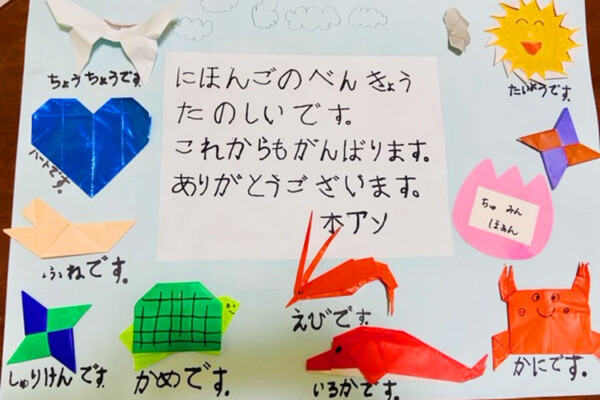 ちょうちょうです。
たいようです。
にほんごのべんきょう
たのしいです。
これからもがんばります。
ありがとうございます。
ホアン
ハートです。
ちゅ みん
ほあん
ふねです。
えびです。
しゅりけんです。
かめです。
いるかです。
かにです。